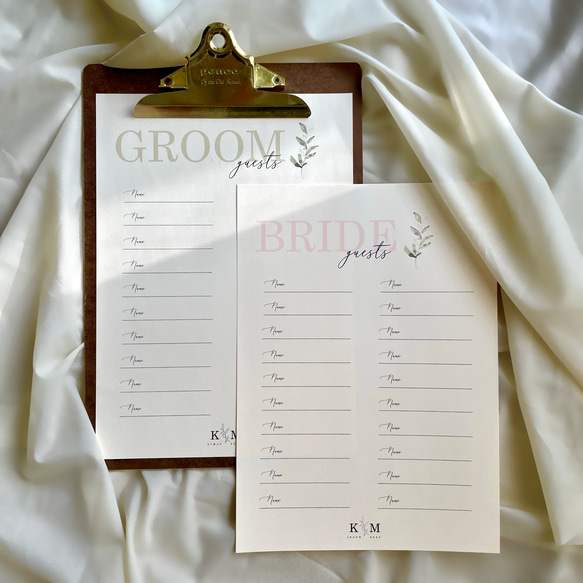 penco
GROOM
guests
Name
Name
Name
Name
Name
Name
Name
Name
Name
Name
K M
BRIDE
guests
Name Name
Name Name
Name Name
Name Name
Name Name
Name Name
Name Name
Name Name
Name Name
Name Name
K M